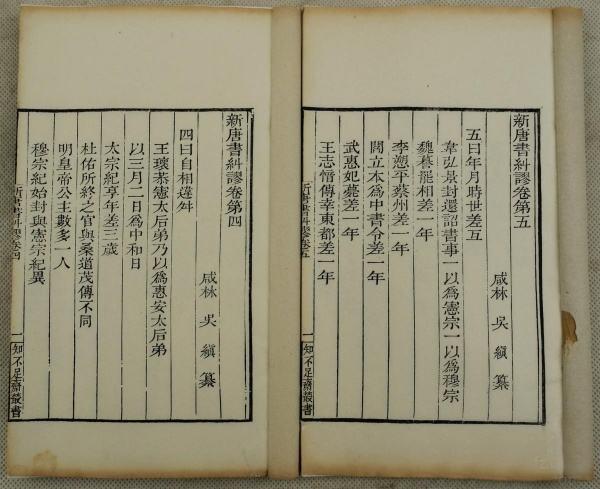 新唐書糾謬卷第五
咸林吳縝纂
五曰年月時世差互
韋弘景封還詔書事一以爲憲宗一以爲穆宗
魏謩罷相差一年
李愬平蔡州差一年
閻立本爲中書令差一年
武惠妃薨差一年
王志愔傳幸東都差一年
新唐書糾謬卷五
一知不足齋叢書
新唐書糾謬卷第四
咸林吳縝纂
四曰自相違舛
王璬恭憲太后弟乃以爲惠安太后弟
以三月二日爲中和日
太宗紀享年差三歲
杜佑所終之官與桑道茂傳不同
明皇帝公主數多一人
穆宗紀始封與憲宗紀異
新唐書糾謬卷四
一知不足齋叢書